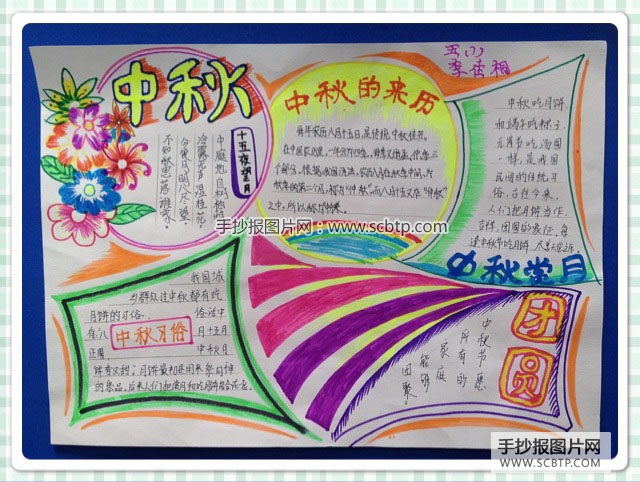 五(1)
李杏桐
中秋
十五夜望月
中庭地白树栖鸦
冷露无声湿桂花
今夜月明人尽望
不知秋思落谁家
中秋的来历
每年农历八月十五日,是传统中秋佳节。
在中国农历里,一年分为四季,每季又分孟、仲、季三
个部分,
秋季的第二个月,称为"仲秋"而八月十五又在"仲秋"
之中,所以称为中秋。
中秋吃月饼
和端午吃粽子
元宵节吃汤圆
一样,是我国
民间的传统习
俗。古往今来,
人们把月饼当作
吉祥、团圆的象征,每
逢中秋节吃月饼
中秋赏月
手抄报图片网--www.scbtp.com
我国城
乡群众过中秋都有吃
月饼的习俗,俗话中
有:八 月十五月
正圆, 中秋月
中秋习俗
饼香又甜;月饼最初是用来祭月神
的祭品,后来人们把赏月和吃月饼结合在一起
团圆
中秋节愿
所有的
家庭
能够
团聚
手抄报图片网
WWW.SCBTP.COM